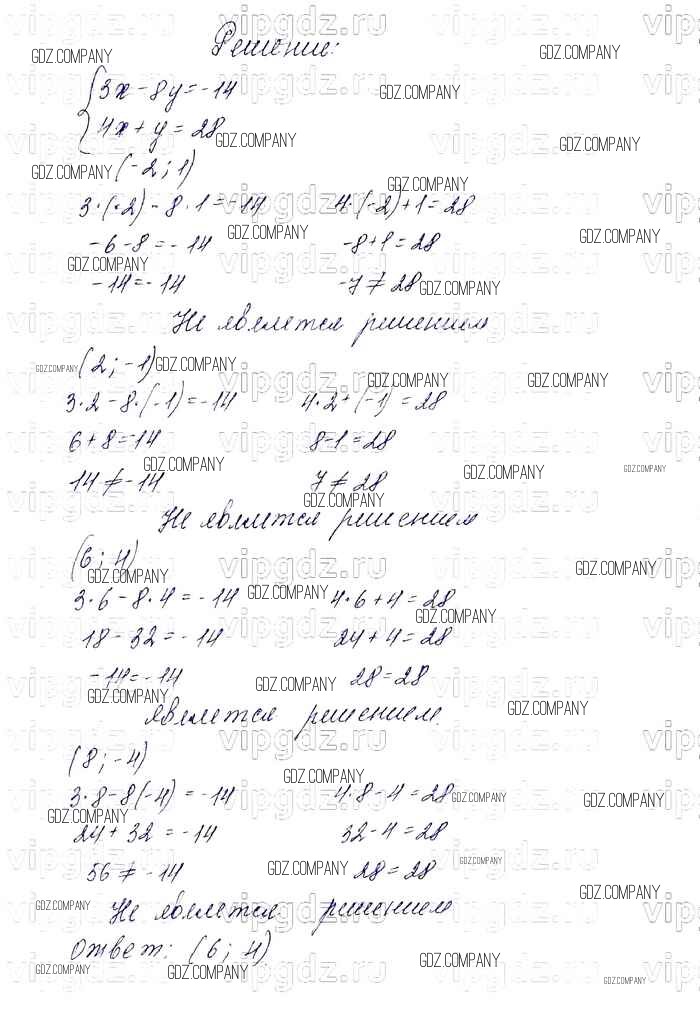 Решение:
{3x - 8y = -14
{4x + y = 28
(-2; 1)
3·(-2) - 8·1 = -14 4·(-2)+1 = 28
-6-8 = -14 -8+1 = 28
-14 = -14 -7 ≠ 28
Не является решением
(2; -1)
3·2 - 8·(-1) = -14 4·2 + (-1) = 28
6+8 = -14 8-1 = 28
14 ≠ -14 7 ≠ 28
Не является решением
(6; 4)
3·6 - 8·4 = -14 4·6 + 4 = 28
18 - 32 = -14 24 + 4 = 28
-14 = -14 28 = 28
является решением.
(8; -4)
3·8 - 8(-4) = -14 4·8 - 4 = 28
24 + 32 = -14 32 - 4 = 28
56 ≠ -14 28 = 28
Не является решением
Ответ: (6; 4)
GDZ.COMPANY
vipgdz.ru